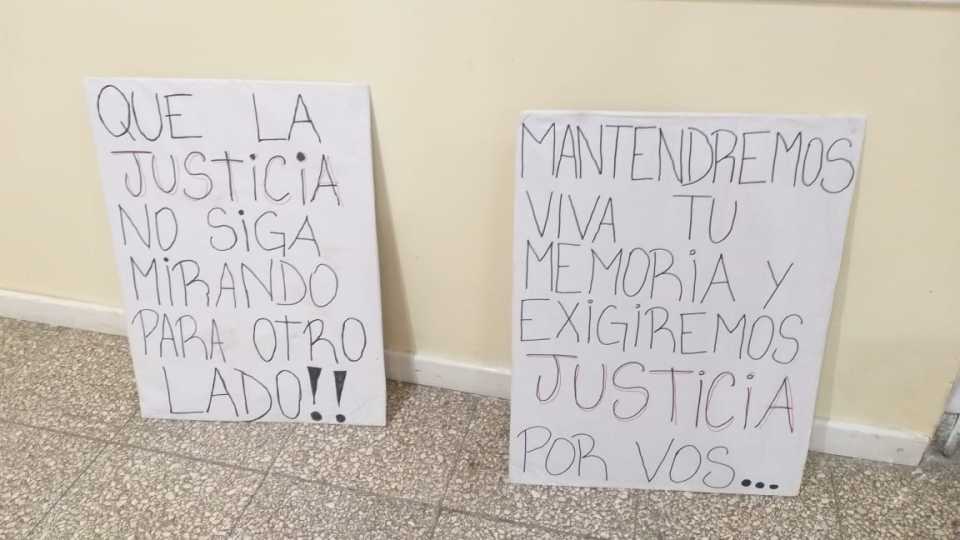 QUE LA
JUSTiCiA
NO SiGA
MiRANDO
PARA OTRO
LADO!!
MANTENDREMOS
VIVA TU
MEMORiA Y
EXiGiREMOS
JUSTiCiA
POR VOS...